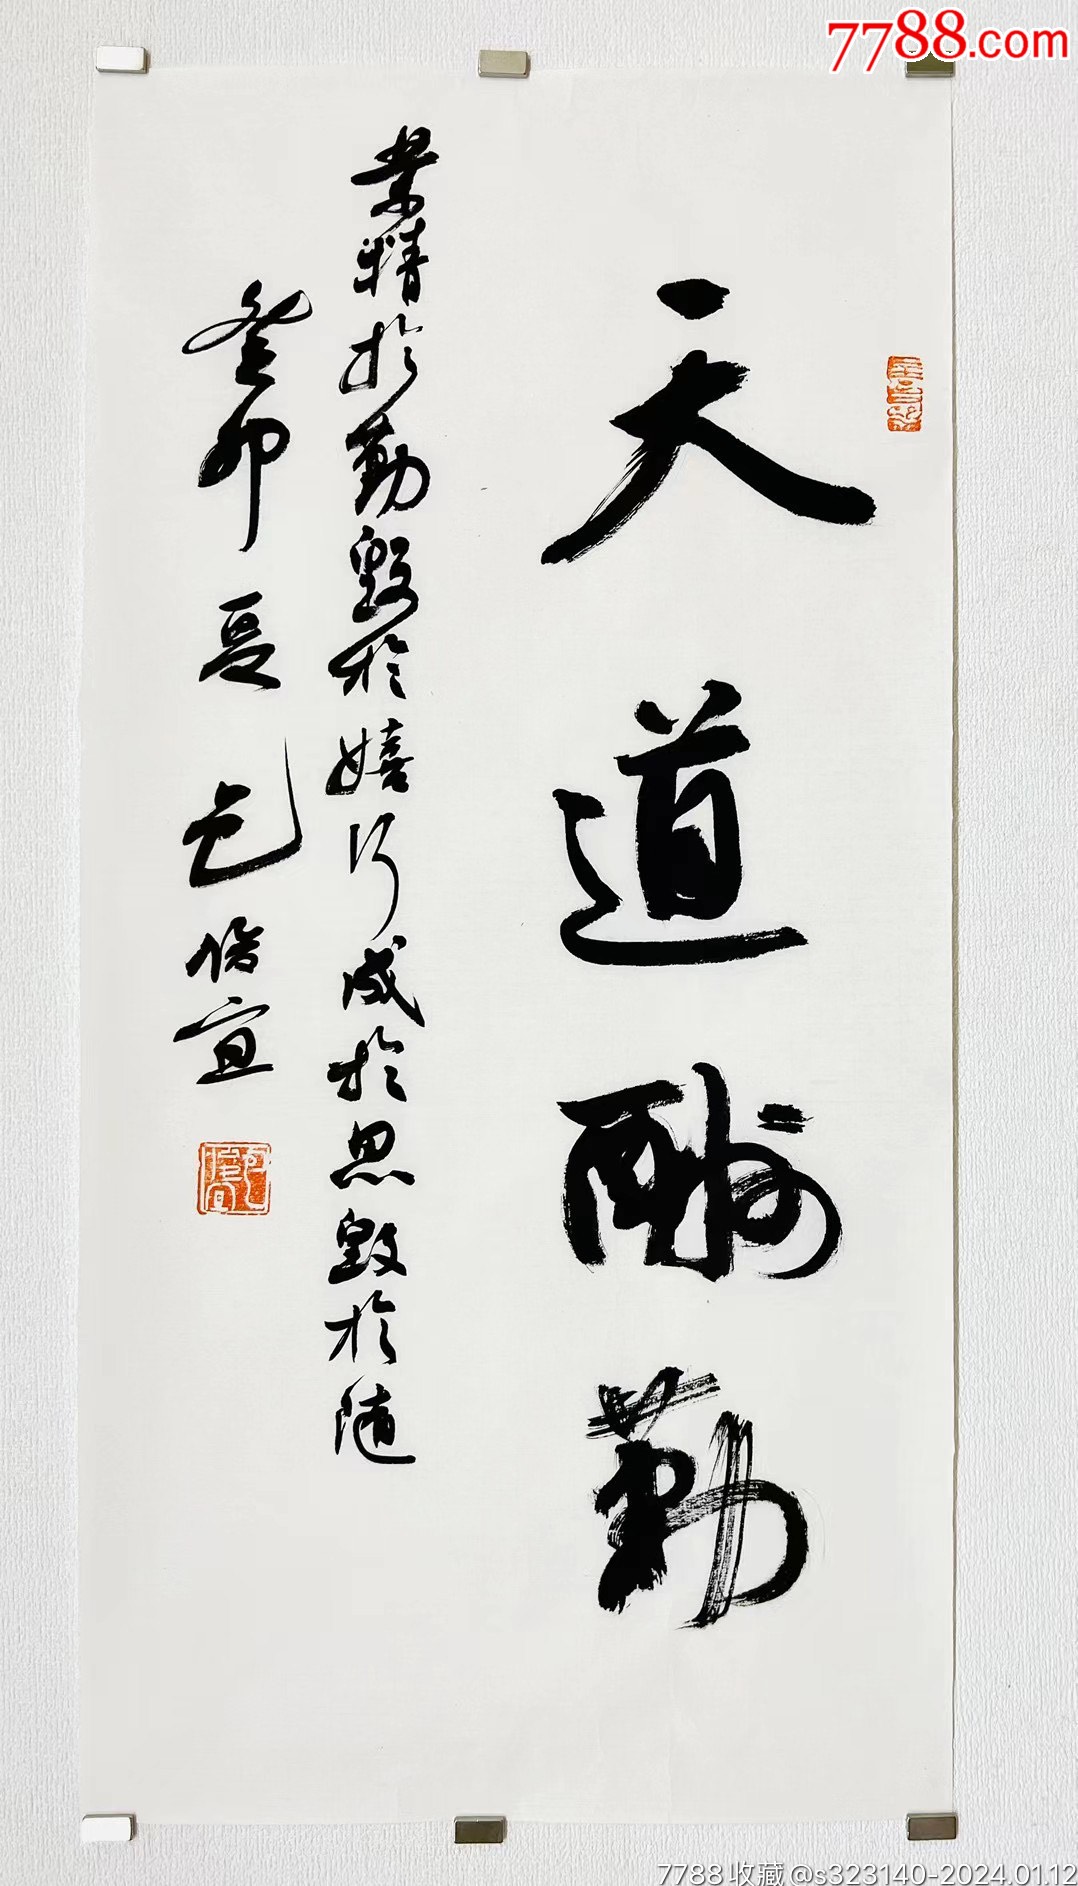 7788.com
天道酬勤
業精於勤毀於嬉行成於思毀於隨
癸卯夏包俊宜
7788收藏@s323140-2024.01.12